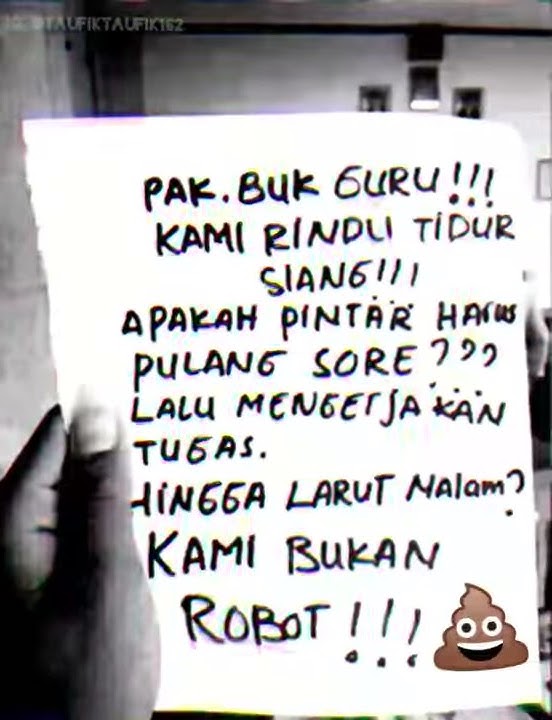 IG: @TAUFIKTAUFIK162
PAK. BUK GURU!!!
KAMI RINDU TIDUR
SIANG!!!
APAKAH PINTAR HARUS
PULANG SORE???
LALU MENGERJAKAN
TUGAS.
HINGGA LARUT MALAM?
KAMI BUKAN
ROBOT!!!